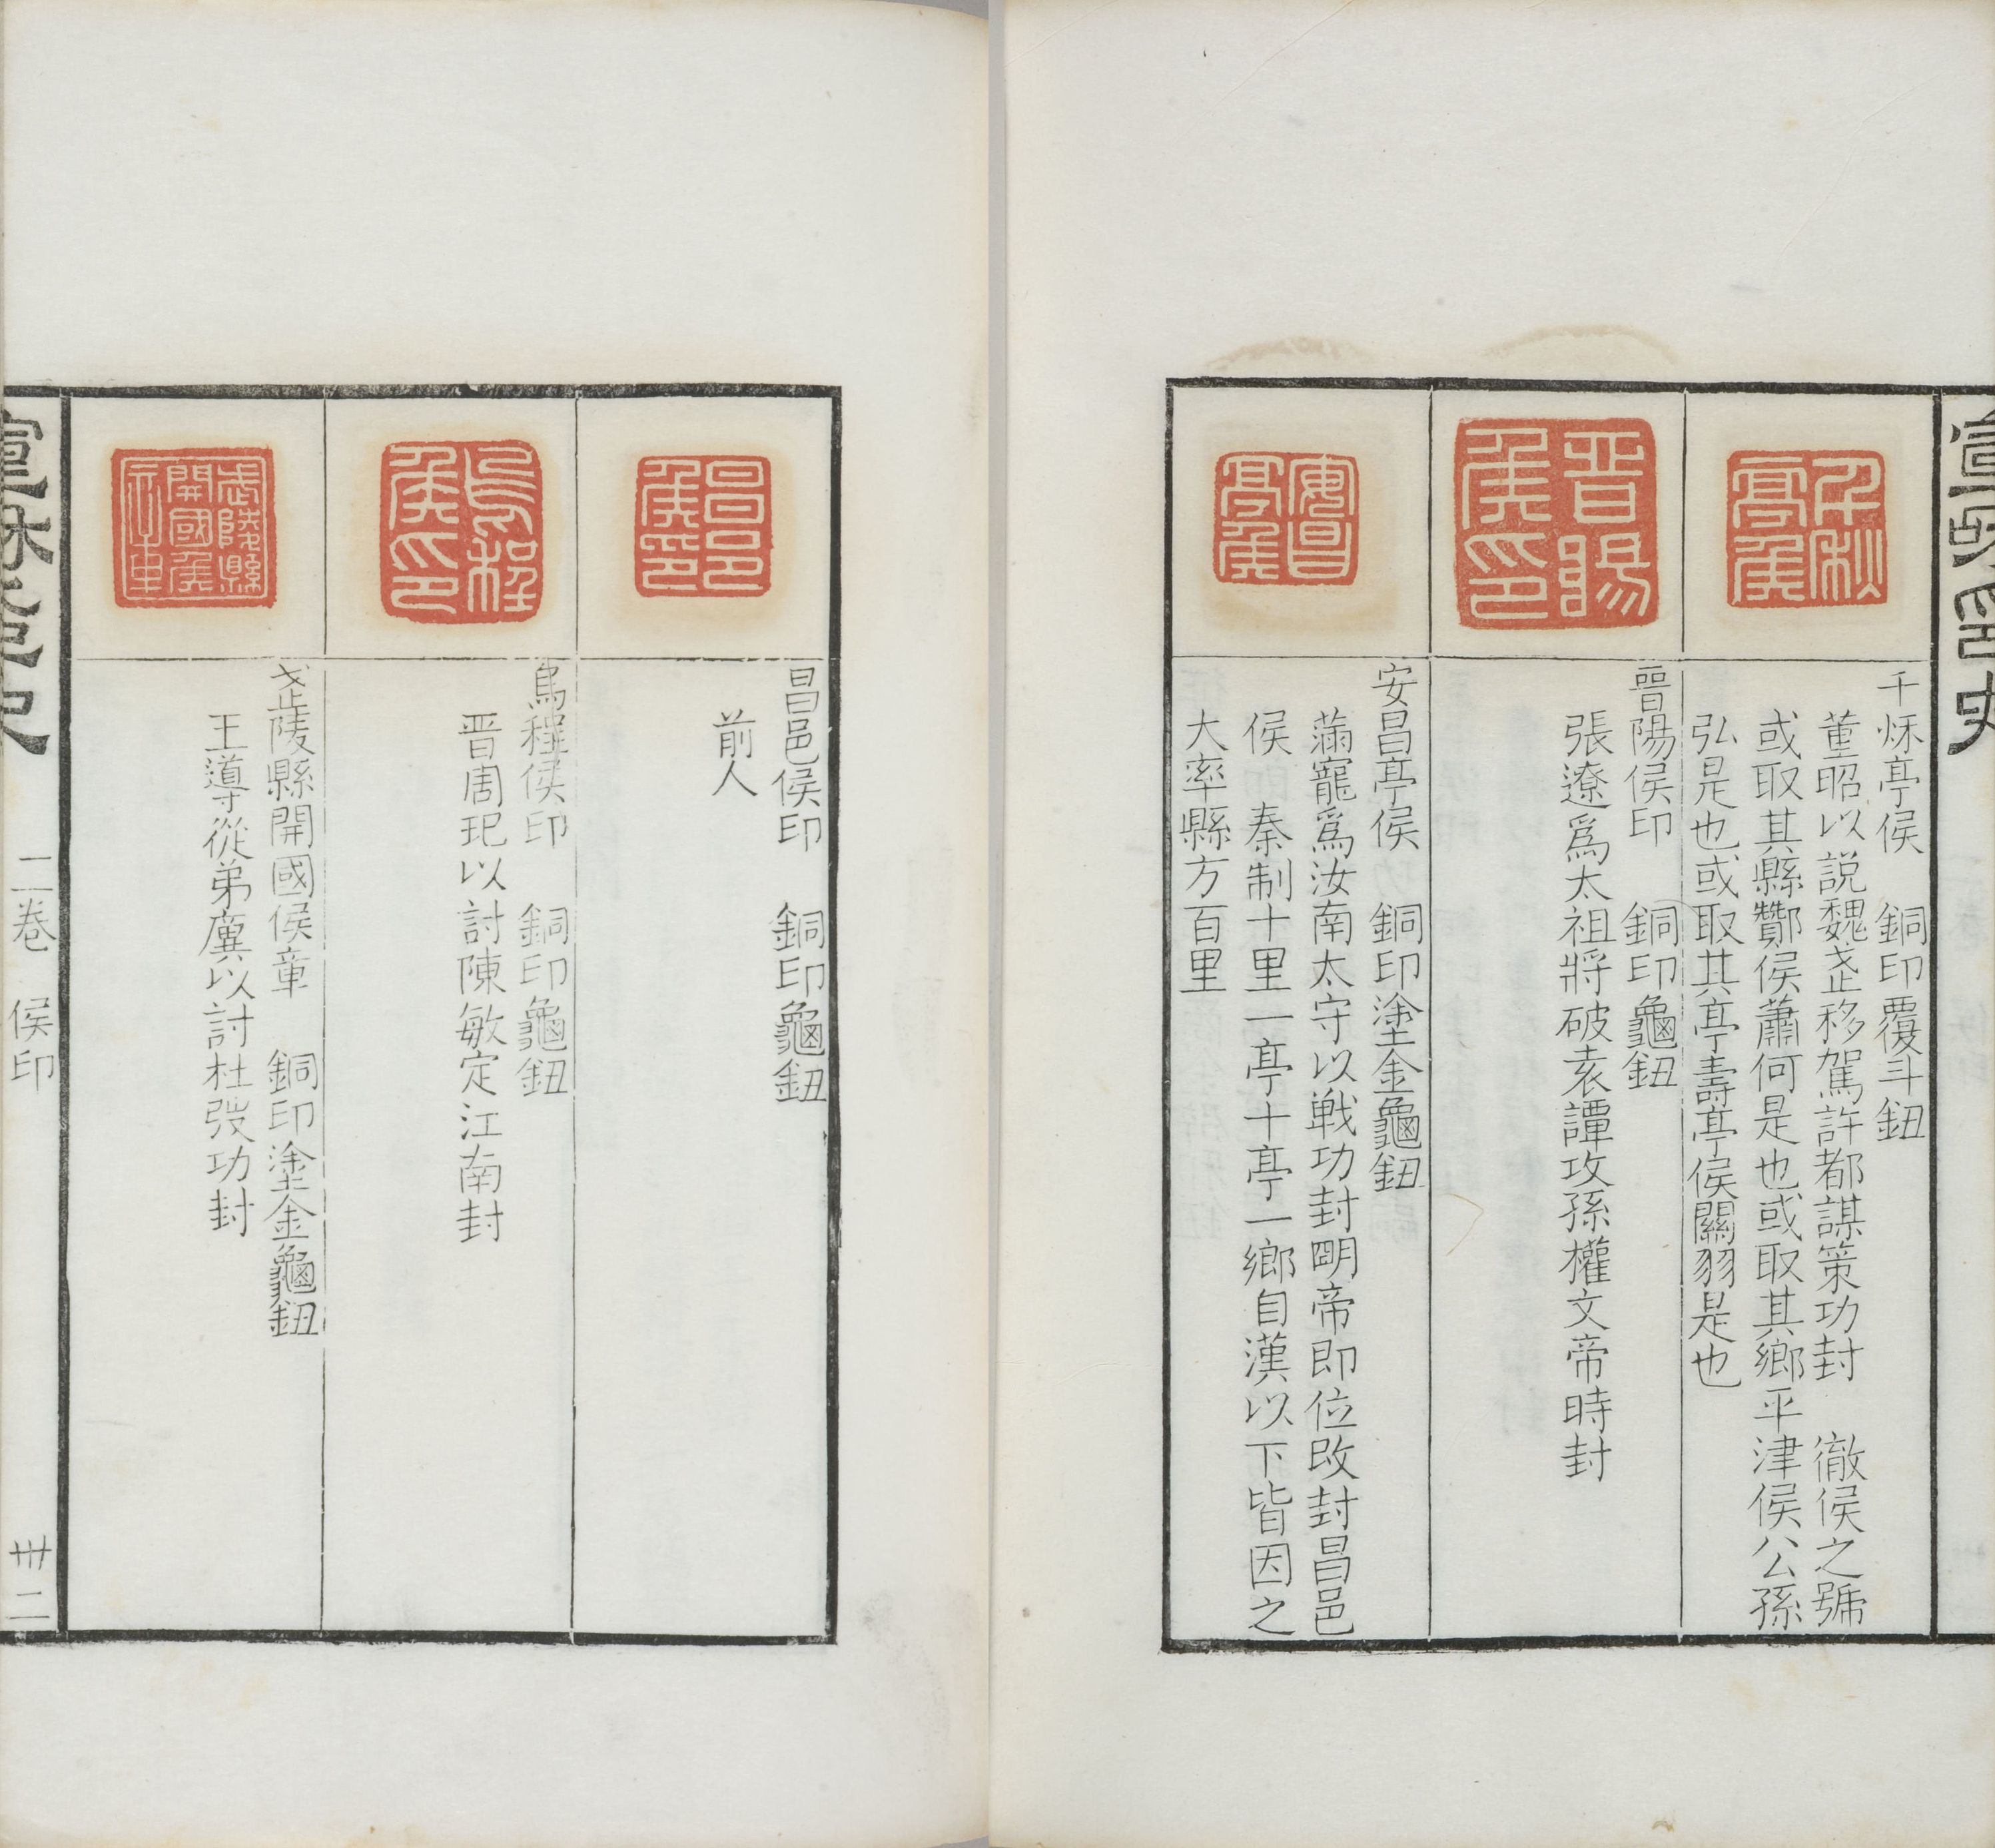 宣和印史
千秋亭侯
千秌亭侯　銅印覆斗鈕
董昭以説魏武移駕許都謀策功封　徹侯之號
或取其縣酇侯蕭何是也或取其鄉平津侯公孫
弘是也或取其亭壽亭侯關羽是也
晋陽侯印
晉陽侯印　銅印龜鈕
張遼爲太祖將破袁譚攻孫權文帝時封
安昌亭侯
安昌亭侯　銅印塗金龜鈕
滿寵爲汝南太守以戰功封朙帝即位改封昌邑
侯　秦制十里一亭十亭一鄉自漢以下皆因之
大率縣方百里
昌邑侯印
昌邑侯印　銅印龜鈕
前人
烏程侯印
烏程侯印　銅印龜鈕
晋周玘以討陳敏定江南封
武陵縣開國侯章
武陵縣開國侯章　銅印塗金龜鈕
王導從弟廙以討杜弢功封
宣和印史
二卷　侯印
卅二